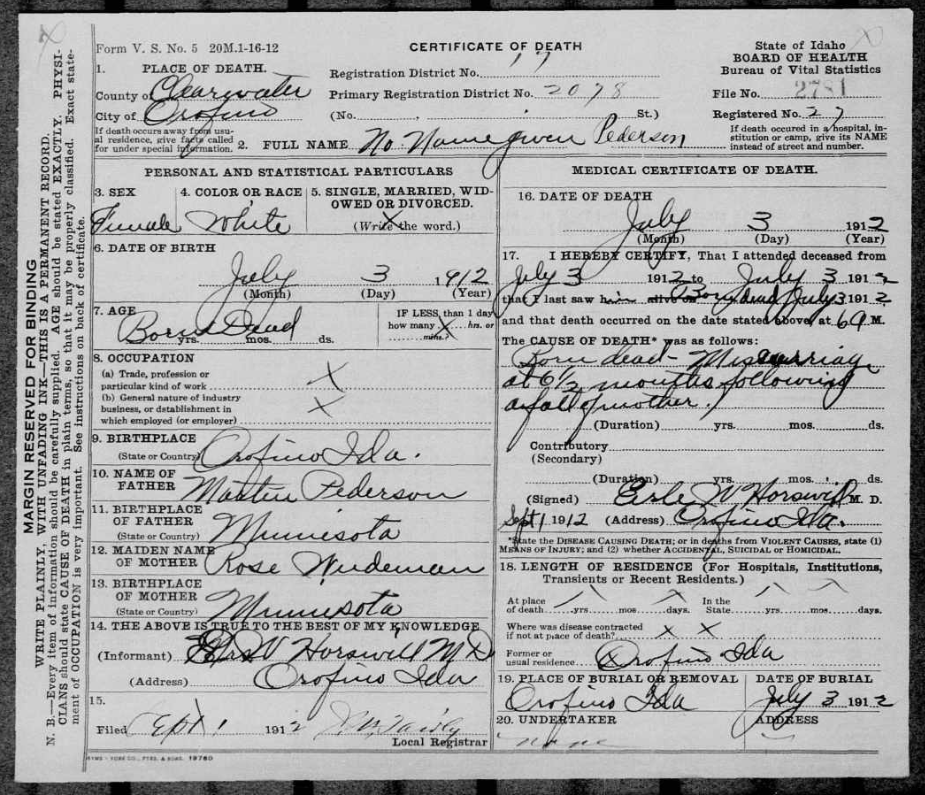 MARGIN RESERVED FOR BINDING
WRITE PLAINLY, WITH UNFADING INK—THIS IS A PERMANENT RECORD.
N. B.—Every item of information should be carefully supplied. AGE should be stated EXACTLY. PHYSI-
CIANS should state CAUSE OF DEATH in plain terms, so that it may be properly classified. Exact state-
ment of OCCUPATION is very important. See instructions on back of certificate.
Form V. S. No. 5 20M.1-16-12
CERTIFICATE OF DEATH
State of Idaho
BOARD OF HEALTH
Bureau of Vital Statistics
1. PLACE OF DEATH.
Registration District No. 17
County of Clearwater
Primary Registration District No. 2078
File No. 2781
City of Orofino
(No. , St.)
Registered No. 27
If death occurs away from usu-
al residence, give facts called
for under special information.
2. FULL NAME No Name given Pederson
If death occured in a hospital, in-
stitution or camp, give its NAME
instead of street and number.
PERSONAL AND STATISTICAL PARTICULARS
3. SEX
Female
4. COLOR OR RACE
White
5. SINGLE, MARRIED, WID-
OWED OR DIVORCED.
X
(Write the word.)
6. DATE OF BIRTH
July 3 1912
(Month) (Day) (Year)
7. AGE
Born Dead
yrs. mos. ds.
IF LESS than 1 day
how many X hrs. or
mins.
8. OCCUPATION
(a) Trade, profession or
particular kind of work X
(b) General nature of industry
business, or establishment in X
which employed (or employer)
9. BIRTHPLACE
(State or Country) Orofino Ida.
10. NAME OF
FATHER Martin Pederson
11. BIRTHPLACE
OF FATHER
(State or Country) Minnesota
12. MAIDEN NAME
OF MOTHER Rose
13. BIRTHPLACE
OF MOTHER
(State or Country) Minnesota
14. THE ABOVE IS TRUE TO THE BEST OF MY KNOWLEDGE
(Informant) Horswill M D
(Address) Orofino Ida
15.
Filed Sept 1 1912
Local Registrar
SYMS - YORK CO., PTRS. & BDRS. 19760
MEDICAL CERTIFICATE OF DEATH.
16. DATE OF DEATH
July 3 1912
(Month) (Day) (Year)
17. I HEREBY CERTIFY, That I attended deceased from
July 3 1912 to July 3 1912
that I last saw him alive on Born dead July 3 1912
and that death occurred on the date stated above, at M.
The CAUSE OF DEATH* was as follows:
Born dead - Miscarriag
at 6½ months following
a fall of mother.
(Duration) yrs. mos. ds.
Contributory
(Secondary)
(Duration) yrs. mos. ds.
(Signed) Erle W Horswill M. D.
Sept 1 1912 (Address) Orofino Ida.
*State the DISEASE CAUSING DEATH; or in deaths from VIOLENT CAUSES, state (1)
MEANS OF INJURY; and (2) whether ACCIDENTAL, SUICIDAL or HOMICIDAL.
18. LENGTH OF RESIDENCE (For Hospitals, Institutions,
Transients or Recent Residents.)
At place
of death yrs. mos. days.
In the
State yrs. mos. days.
Where was disease contracted
if not at place of death? X X
Former or
usual residence Orofino Ida
19. PLACE OF BURIAL OR REMOVAL
Orofino Ida
DATE OF BURIAL
July 3 1912
20. UNDERTAKER
none
ADDRESS